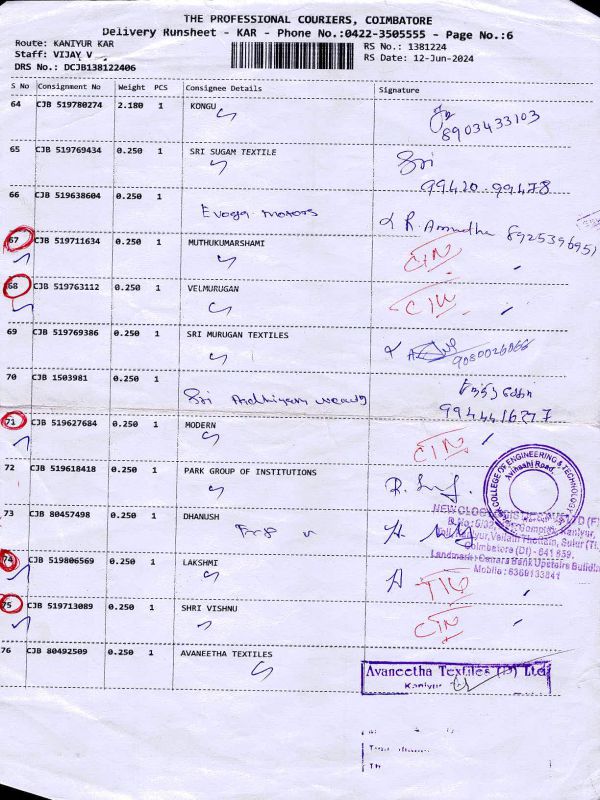 THE PROFESSIONAL COURIERS, COIMBATORE
Delivery Runsheet - KAR - Phone No.:0422-3505555 - Page No.:6
Route: KANIYUR KAR RS No.: 1381224
Staff: VIJAY V RS Date: 12-Jun-2024
DRS No.: DCJB138122406
S No Consignment No Weight PCS Consignee Details Signature
64 CJB 519780274 2.180 1 KONGU
8903433103
65 CJB 519769434 0.250 1 SRI SUGAM TEXTILE Sri
99420-99478
66 CJB 519638604 0.250 1
Evoga motors R. Amudha 8925396951
67 CJB 519711634 0.250 1 MUTHUKUMARSHAMI CIN
68 CJB 519763112 0.250 1 VELMURUGAN CIN
69 CJB 519769386 0.250 1 SRI MURUGAN TEXTILES
70 CJB 1503981 0.250 1
Sri
71 CJB 519627684 0.250 1 MODERN CIN
72 CJB 519618418 0.250 1 PARK GROUP OF INSTITUTIONS
COLLEGE OF ENGINEERING & TECHNOLOGY
Avinashi Road
73 CJB 80457498 0.250 1 DHANUSH
Coimbatore (Dt) - 641 659.
Landmark: Canara Bank Upstairs Building
Mobile : 6369133841
74 CJB 519806569 0.250 1 LAKSHMI
75 CJB 519713089 0.250 1 SHRI VISHNU CIN
76 CJB 80492509 0.250 1 AVANEETHA TEXTILES
Avaneetha Textiles (P) Ltd
Kaniyur